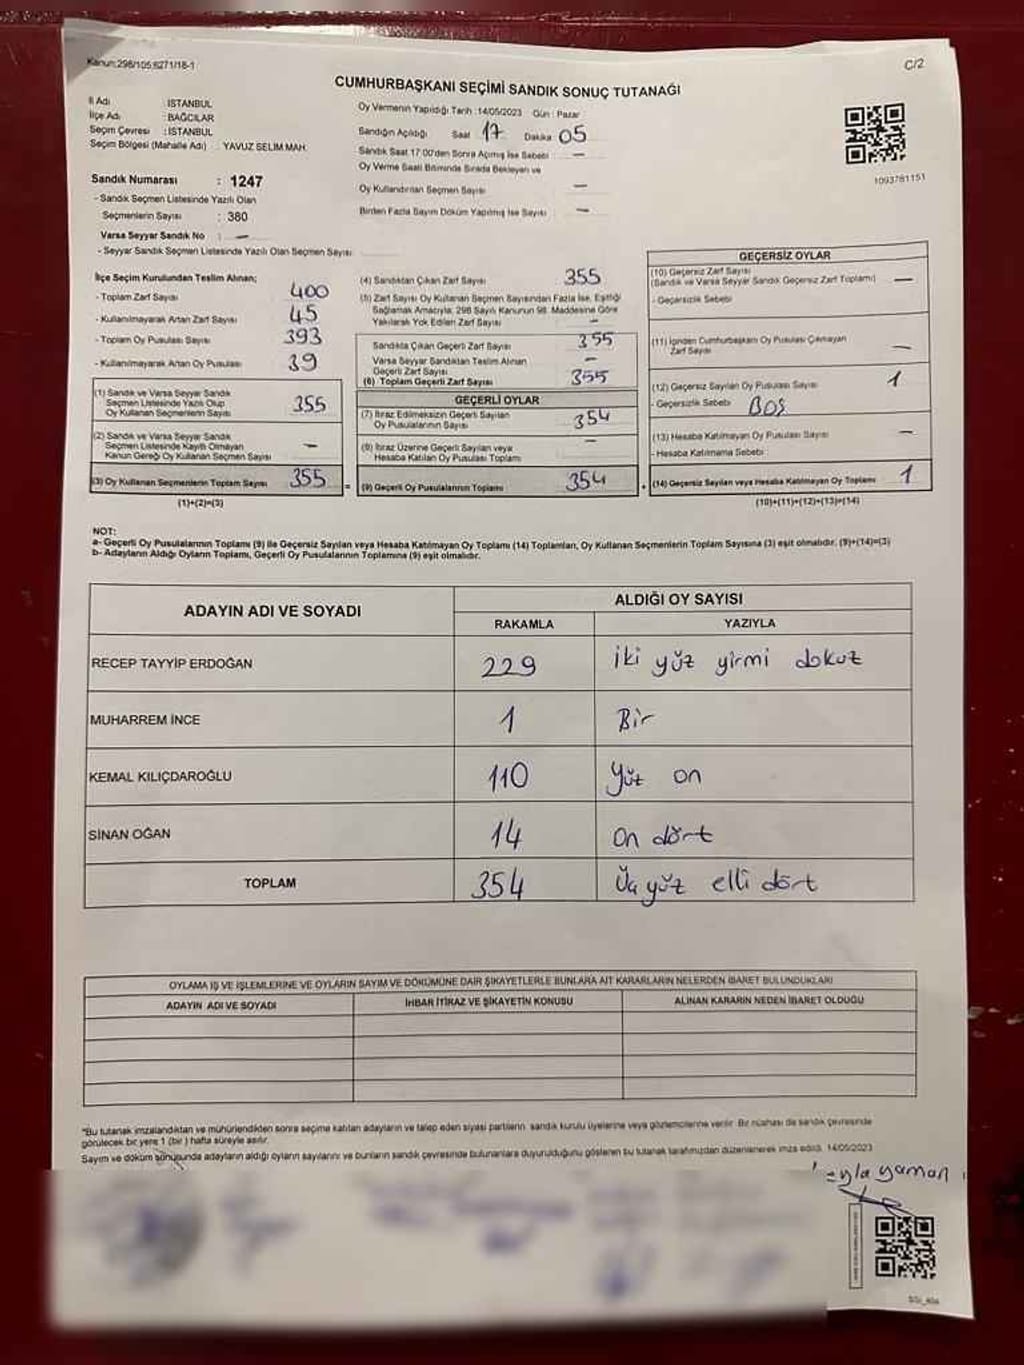 Kanun:298/105;6271/18-1
C/2
CUMHURBAŞKANI SEÇİMİ SANDIK SONUÇ TUTANAĞI
İl Adı : İSTANBUL
İlçe Adı : BAĞCILAR
Seçim Çevresi : İSTANBUL
Seçim Bölgesi (Mahalle Adı) : YAVUZ SELİM MAH.
Sandık Numarası : 1247
- Sandık Seçmen Listesinde Yazılı Olan
Seçmenlerin Sayısı : 380
Varsa Seyyar Sandık No : —
- Seyyar Sandık Seçmen Listesinde Yazılı Olan Seçmen Sayısı
Oy Vermenin Yapıldığı Tarih : 14/05/2023 Gün : Pazar
Sandığın Açıldığı Saat 17 Dakika 05
Sandık Saat 17:00'den Sonra Açılmış İse Sebebi : —
Oy Verme Saati Bitiminde Sırada Bekleyen ve
Oy Kullandırılan Seçmen Sayısı —
Birden Fazla Sayım Döküm Yapılmış İse Sayısı : —
1093781151
İlçe Seçim Kurulundan Teslim Alınan;
- Toplam Zarf Sayısı 400
- Kullanılmayarak Artan Zarf Sayısı 45
- Toplam Oy Pusulası Sayısı 393
- Kullanılmayarak Artan Oy Pusulası 39
(1) Sandık ve Varsa Seyyar Sandık
Seçmen Listesinde Yazılı Olup
Oy Kullanan Seçmenlerin Sayısı 355
(2) Sandık ve Varsa Seyyar Sandık
Seçmen Listesinde Kayıtlı Olmayan
Kanun Gereği Oy Kullanan Seçmen Sayısı —
(3) Oy Kullanan Seçmenlerin Toplam Sayısı 355
(1)+(2)=(3)
(4) Sandıktan Çıkan Zarf Sayısı 355
(5) Zarf Sayısı Oy Kullanan Seçmen Sayısından Fazla İse, Eşitliği
Sağlamak Amacıyla, 298 Sayılı Kanunun 98. Maddesine Göre
Yakılarak Yok Edilen Zarf Sayısı —
Sandıkta Çıkan Geçerli Zarf Sayısı 355
Varsa Seyyar Sandıktan Teslim Alınan
Geçerli Zarf Sayısı —
(6) Toplam Geçerli Zarf Sayısı 355
GEÇERLİ OYLAR
(7) İtiraz Edilmeksizin Geçerli Sayılan
Oy Pusulalarının Sayısı 354
(8) İtiraz Üzerine Geçerli Sayılan veya
Hesaba Katılan Oy Pusulası Toplamı —
= (9) Geçerli Oy Pusulalarının Toplamı 354
GEÇERSİZ OYLAR
(10) Geçersiz Zarf Sayısı
(Sandık ve Varsa Seyyar Sandık Geçersiz Zarf Toplamı) —
- Geçersizlik Sebebi
(11) İçinden Cumhurbaşkanı Oy Pusulası Çıkmayan
Zarf Sayısı —
(12) Geçersiz Sayılan Oy Pusulası Sayısı 1
- Geçersizlik Sebebi BOŞ
(13) Hesaba Katılmayan Oy Pusulası Sayısı —
- Hesaba Katılmama Sebebi :
+ (14) Geçersiz Sayılan veya Hesaba Katılmayan Oy Toplamı 1
(10)+(11)+(12)+(13)=(14)
NOT:
a- Geçerli Oy Pusulalarının Toplamı (9) ile Geçersiz Sayılan veya Hesaba Katılmayan Oy Toplamı (14) Toplamları, Oy Kullanan Seçmenlerin Toplam Sayısına (3) eşit olmalıdır. (9)+(14)=(3)
b- Adayların Aldığı Oyların Toplamı, Geçerli Oy Pusulalarının Toplamına (9) eşit olmalıdır.
ADAYIN ADI VE SOYADI ALDIĞI OY SAYISI
RAKAMLA YAZIYLA
RECEP TAYYİP ERDOĞAN 229 iki yüz yirmi dokuz
MUHARREM İNCE 1 Bir
KEMAL KILIÇDAROĞLU 110 Yüz on
SİNAN OĞAN 14 on dört
TOPLAM 354 Üç yüz elli dört
OYLAMA İŞ VE İŞLEMLERİNE VE OYLARIN SAYIM VE DÖKÜMÜNE DAİR ŞİKAYETLERLE BUNLARA AİT KARARLARIN NELERDEN İBARET BULUNDUKLARI
ADAYIN ADI VE SOYADI İHBAR İTİRAZ VE ŞİKAYETİN KONUSU ALINAN KARARIN NEDEN İBARET OLDUĞU
*Bu tutanak imzalandıktan ve mühürlendikten sonra seçime katılan adayların ve talep eden siyasi partilerin sandık kurulu üyelerine veya gözlemcilerine verilir. Bir nüshası da sandık çevresinde
görülecek bir yere 1 (bir) hafta süreyle asılır.
Sayım ve döküm sonucunda adayların aldığı oyların sayılarını ve bunların sandık çevresinde bulunanlara duyurulduğunu gösteren bu tutanak tarafımızdan düzenlenerek imza edildi. 14/05/2023
yaman